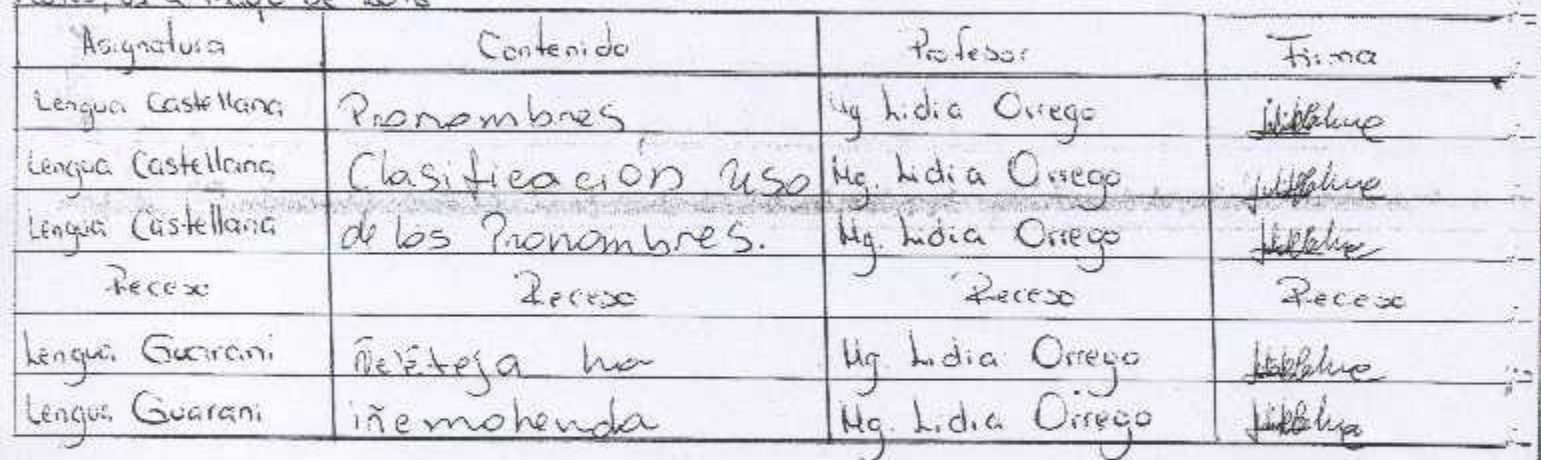 Asignatura Contenido Profesor Firma
Lengua Castellana Pronombres Mg Lidia Orrego
Lengua Castellana Clasificación uso Mg. Lidia Orrego
Lengua Castellana de los Pronombres. Mg. Lidia Orrego
Receso Receso Receso Receso
Lengua Guarani Ñe'ẽteja ha Mg. Lidia Orrego
Lengua Guarani iñemohenda Mg. Lidia Orrego